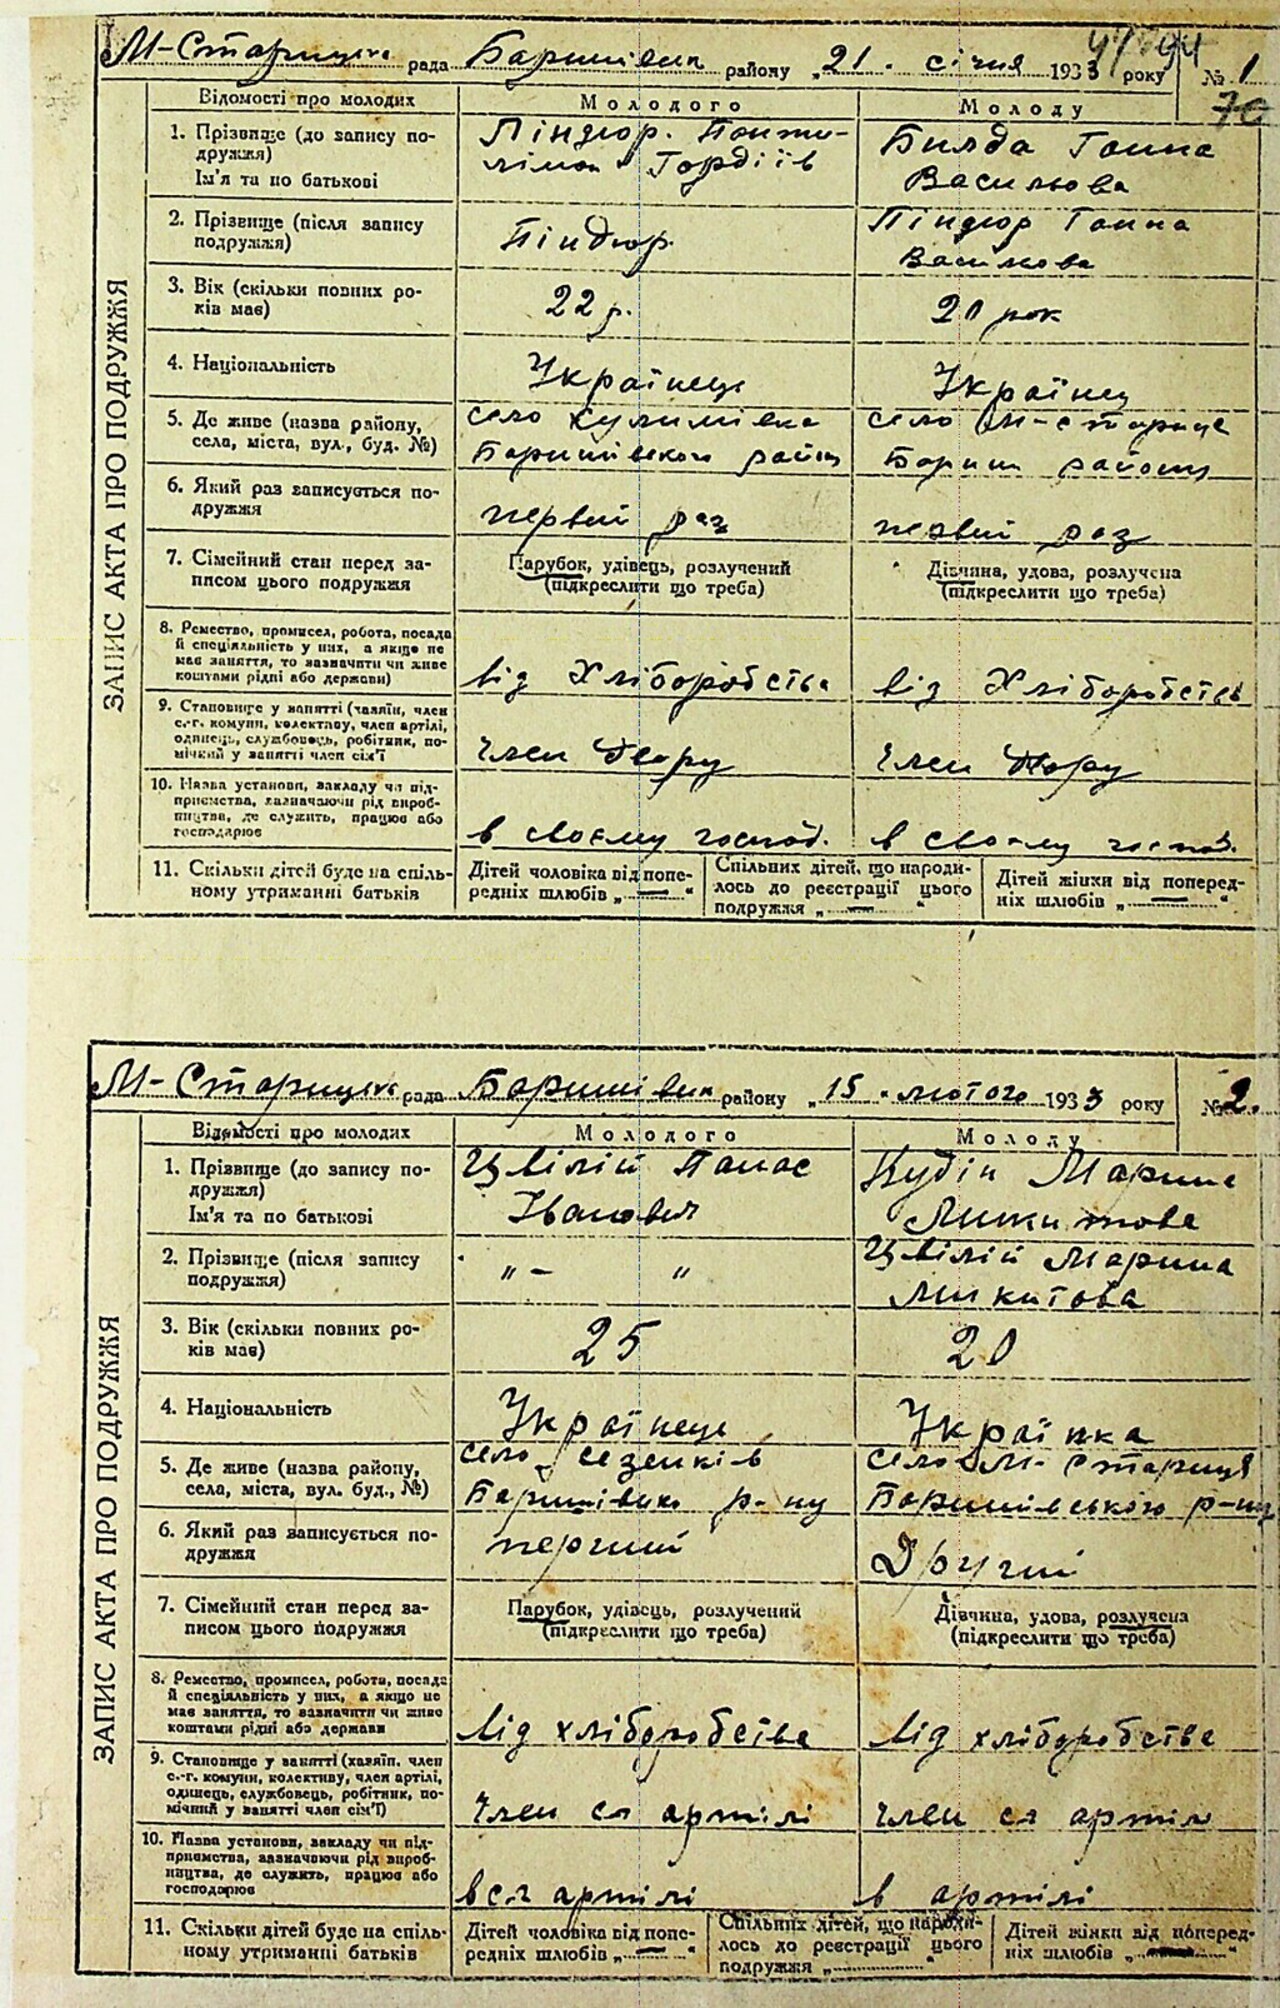 М-Старицька рада Баришівськ району „21. січня 1933 року № 1
70
Відомості про молодих Молодого Молоду
1. Прізвище (до запису по-
дружжя)
Ім'я та по батькові
Піндюр. Панти-
лімон Гордіїв
Билда Ганна
Васильова
2. Прізвище (після запису
подружжя)
Піндюр.
Піндюр Ганна
Васильова
3. Вік (скільки повних ро-
ків має)
22 р.
20 рок
4. Національність
Українець
Українц
5. Де живе (назва району,
села, міста, вул., буд. №)
село Кулимівка
Баришівського район
село М-Стариця
Бориш района
6. Який раз записується по-
дружжя
первий раз
первий раз
7. Сімейний стан перед за-
писом цього подружжя
Парубок, удівець, розлучений
(підкреслити що треба)
Дівчина, удова, розлучена
(підкреслити що треба)
8. Ремество, промисел, робота, посада
й спеціяльність у них, а якщо не
має заняття, то зазначити чи живе
коштами рідні або держави)
від Хліборобства
від Хліборобства
9. Становище у занятті (хазяїн, член
с.-г. комуни, колективу, член артілі,
одинець, службовець, робітник, по-
мічний у занятті член сім'ї
Член Двору
Член Двору
10. Назва установи, закладу чи під-
приємства, зазначаючи рід вироб-
ництва, де служить, працює або
господарює
в своєму господ.
в своєму господ.
11. Скільки дітей буде на спіль-
ному утриманні батьків
Дітей чоловіка від попе-
редніх шлюбів „ — “
Спільних дітей, що народи-
лось до реєстрації цього
подружжя „ — “
Дітей жінки від поперед-
ніх шлюбів „ — “
ЗАПИС АКТА ПРО ПОДРУЖЖЯ
М-Старицька рада Баришівськ району „15. лютого 1933 року № 2.
Відомості про молодих Молодого Молоду
1. Прізвище (до запису по-
дружжя)
Ім'я та по батькові
Цвілій Панас
Іванович
Кудін Марина
Микитова
2. Прізвище (після запису
подружжя)
„ – „
Цвілій Марина
Микитова
3. Вік (скільки повних ро-
ків має)
25
20
4. Національність
Українець
Українка
5. Де живе (назва району,
села, міста, вул. буд., №)
село Сезенків
Баришівсько р-ну
село М-Стариця
Баришівського р-ну
6. Який раз записується по-
дружжя
перший
Другий
7. Сімейний стан перед за-
писом цього подружжя
Парубок, удівець, розлучений
(підкреслити що треба)
Дівчина, удова, розлучена
(підкреслити що треба)
8. Ремество, промисел, робота, посада
й спеціяльність у них, а якщо не
має заняття, то зазначити чи живе
коштами рідні або держави
Від хліборобства
Від хліборобства
9. Становище у занятті (хазяїн, член
с.-г. комуни, колективу, член артілі,
одинець, службовець, робітник, по-
мічний у занятті член сім'ї)
Член сг артілі
член сг артіл
10. Назва установи, закладу чи під-
приємства, зазначаючи рід вироб-
ництва, де служить, працює або
господарює
в сг артілі
в артілі
11. Скільки дітей буде на спіль-
ному утриманні батьків
Дітей чоловіка від попе-
редніх шлюбів „ — “
Спільних дітей, що народи-
лось до реєстрації цього
подружжя „ “
Дітей жінки від поперед-
ніх шлюбів „ — “
ЗАПИС АКТА ПРО ПОДРУЖЖЯ